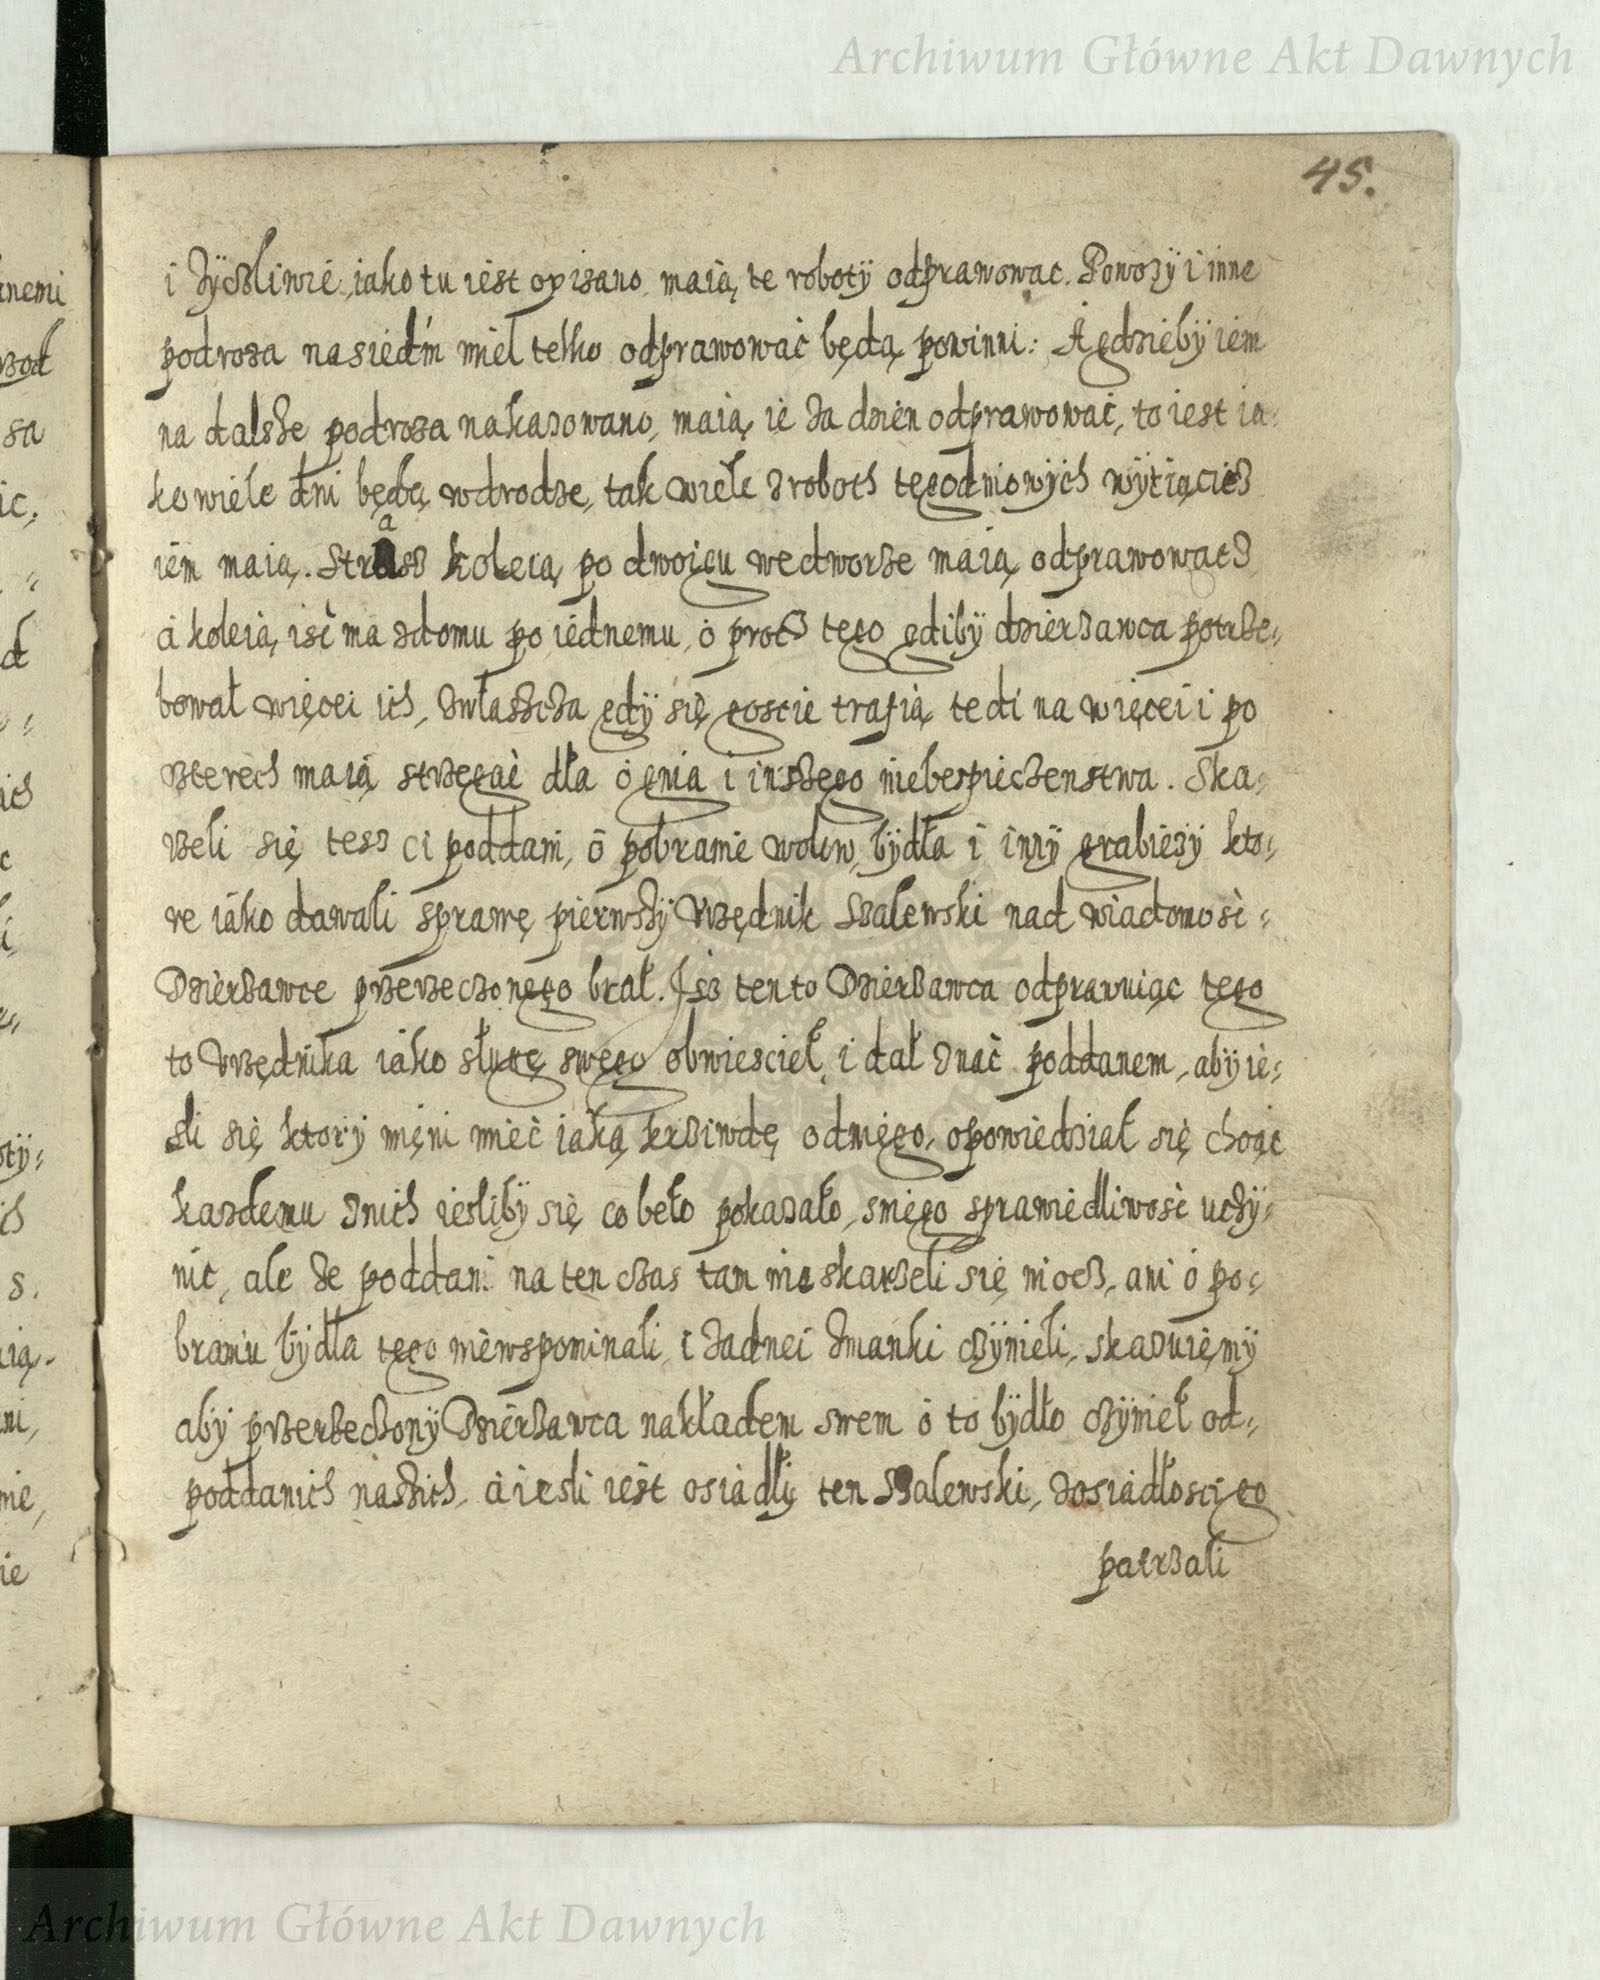 Archiwum Główne Akt Dawnych
45.
i życżliwie, iako tu iest opisano maią te roboty odprawowac. Powozy i inne
podroza na siedm mil telko odprawować będą powinni: A gdzieby iem
na dalsze podroza nakazowano, maią ie za dzien odprawować, to iest ia-
ko wiele dni będą wdrodze, tak wiele z roboth tegodniowych wytiąciez
iem maią. Strasz koleią po dwoigu wedworze maią odprawowacz
a koleią isć ma zdomu po iednemu, o procz tego gdiby dzierzawca potrze-
bował więcei ich, zwłaszcza gdy się goscie trafią tedi na więcei i po
czterech maią strzegać dla ognia i inszego niebespieczenstwa. Ska-
rzeli się tesz ci poddani, o pobranie wołuw, bydła i inny grabieży kto-
re iako dawali sprawę pierwszy Urzędnik Szalewski nad wiadomosć
Dzierzawce przerzeczonego brał. Isz ten to Dzierzawca odprawuiąc tego
to Urzędnika iako sługę swego obwiescieł, i dał znać poddanem, aby ie-
sli się ktory męni mieć iaką krziwdę odniego, opowiedział się chcąc
kazdemu znich iesliby się co beło pokazało, sniego sprawiedliwosć uczy-
nic, ale że poddani na ten czas tam nie skarzeli się niocz, ani o po-
braniu bydła tego niewspominali, i zadnei zmanki czynieli, skazuiemy
aby przerzeczony Dzierzawca nakładem swem o to bydło czynieł od-
poddanich naszich, a iesli iest osiadły ten Szalewski, zosiadłosci go
patrzali
Archiwum Główne Akt Dawnych